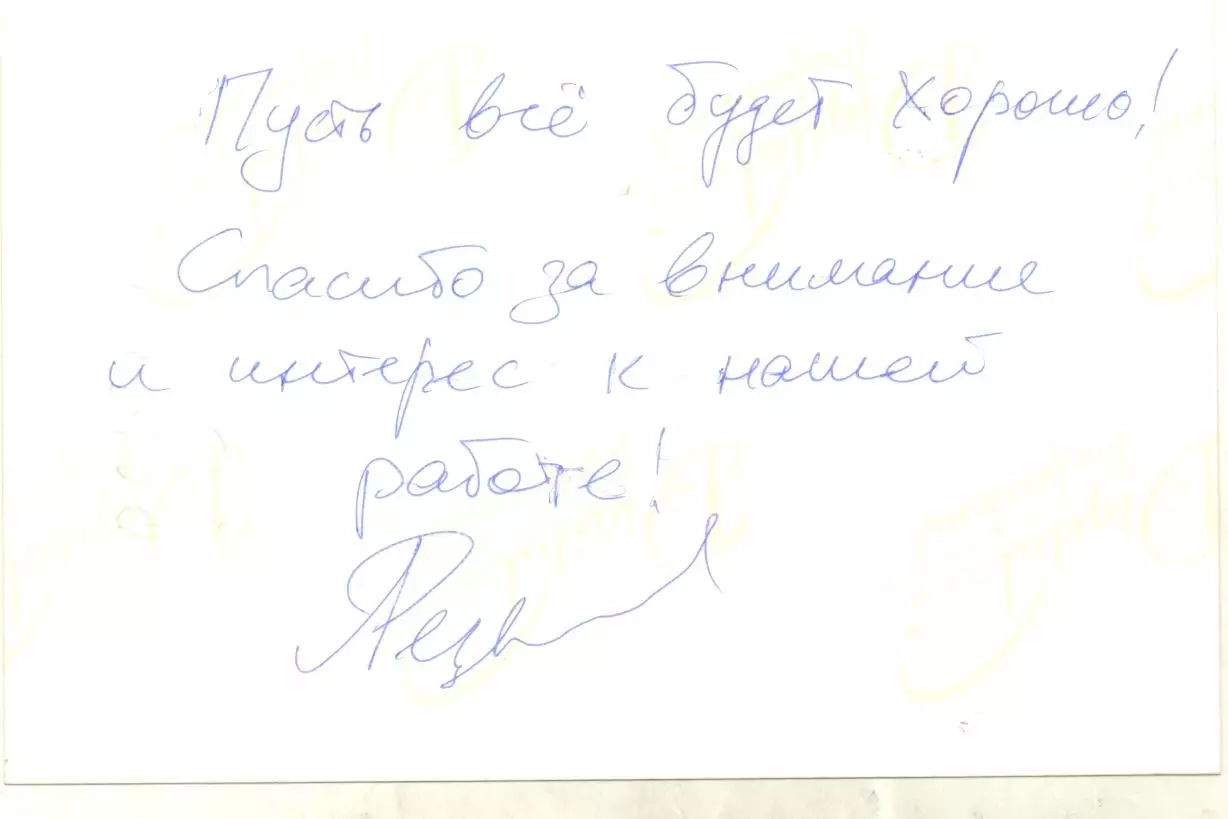 Пусть всё будет Хорошо!
Спасибо за внимание
и интерес к нашей
работе!